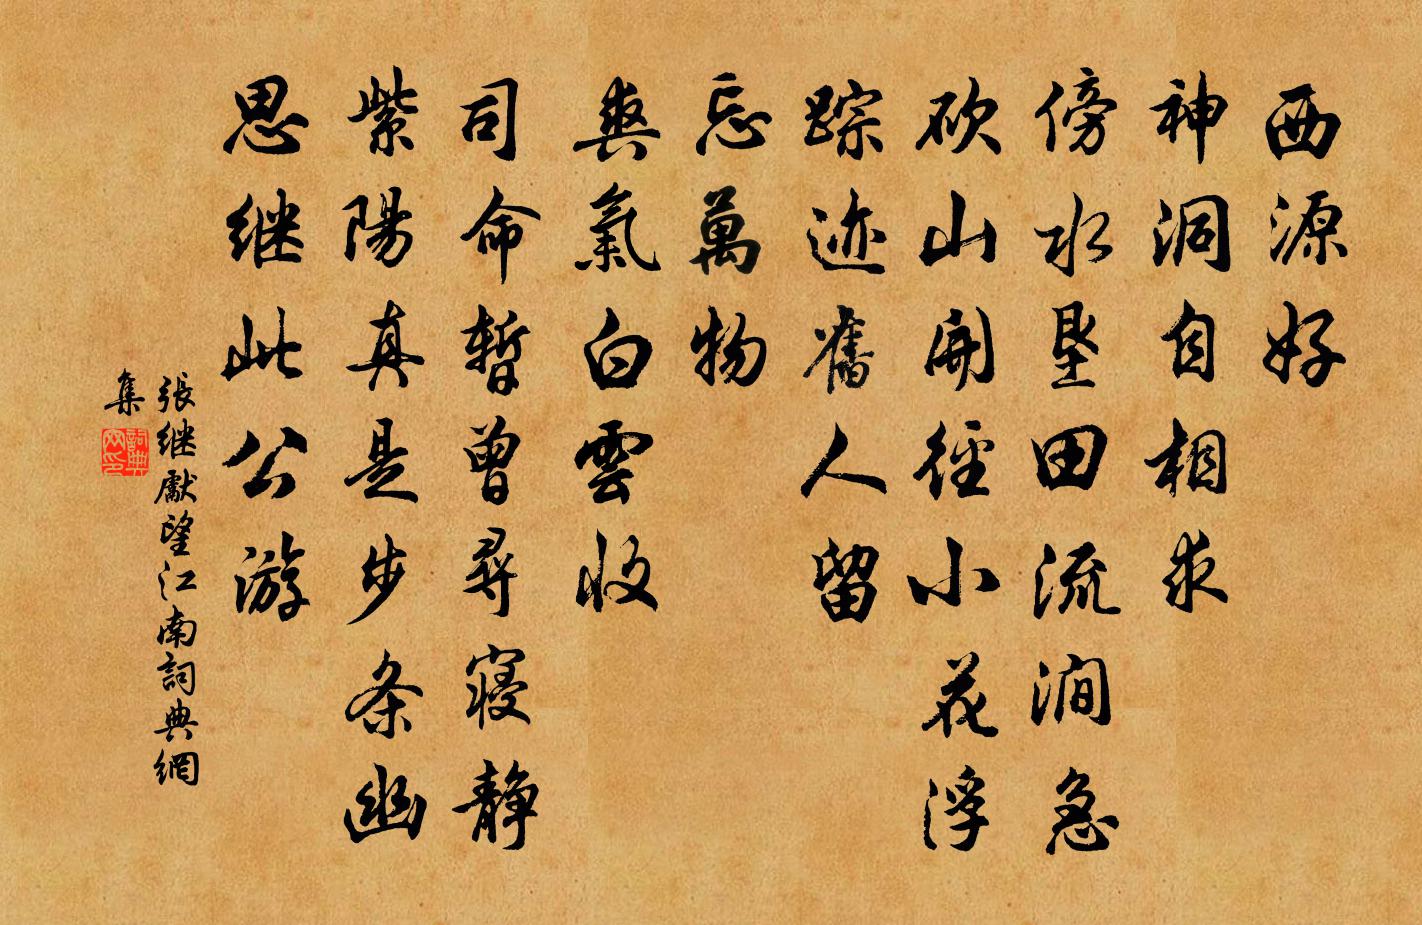 西源好
神洞自相求
傍水垦田流涧急
砍山開徑小花浮
踪迹舊人留
忘萬物
爽氣白雲收
司命暫曾尋寝静
紫陽真是步条幽
思继此公游
張继獻望江南詞典網
集
詞典
网印